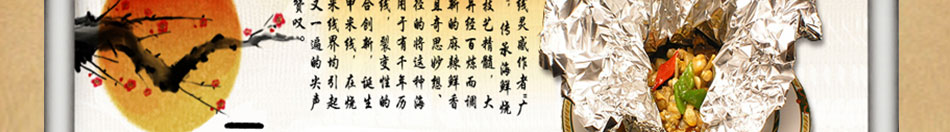 线灵感作者“广
，传承海鲜烧
并经百炼而调
技艺精髓，大
且奇思妙想、
新的麻辣鲜香
径的将这种海
用于有千年历
线，裂变性的
合创新，诞生
甲米线，在烧
米线界均引起
又一遍的尖声
赞叹。